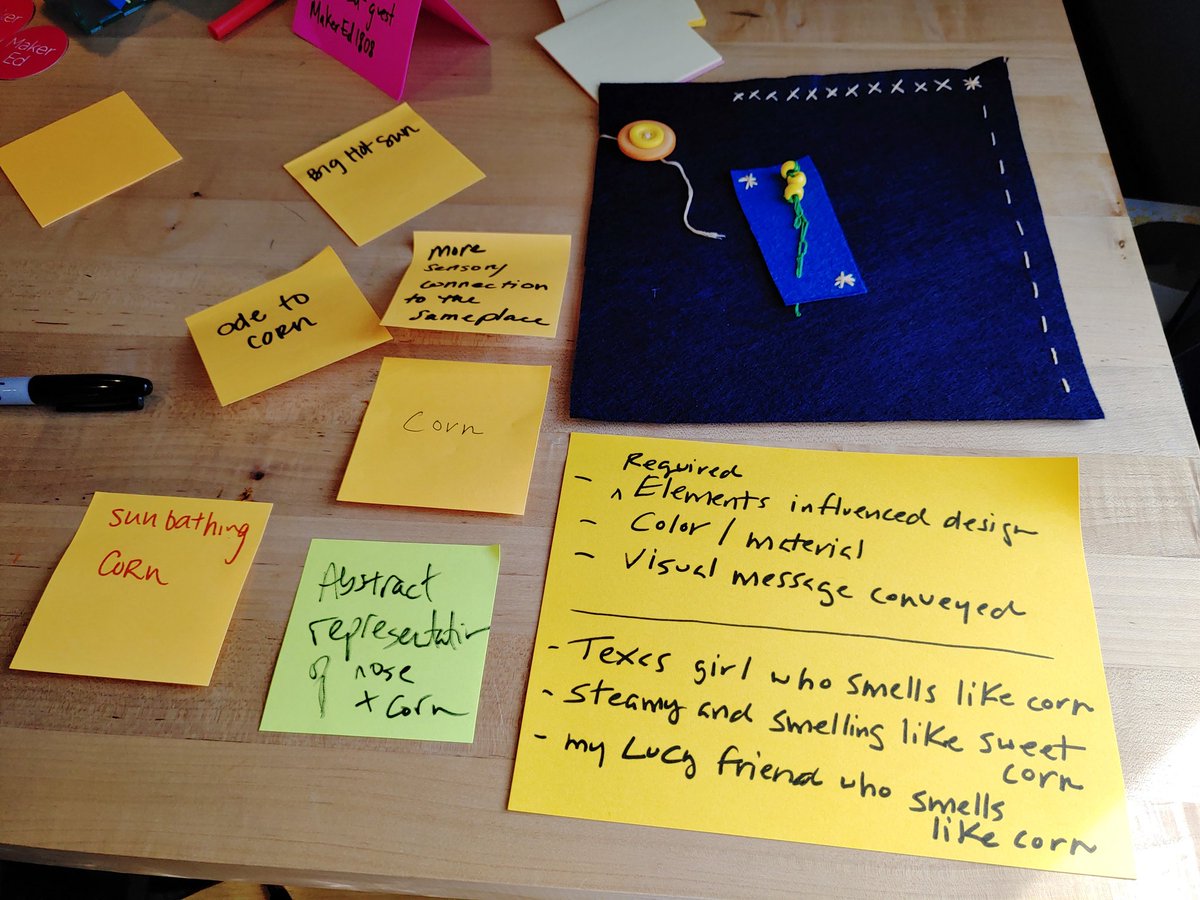 Maker
Ed
guest
MakerEd 1808
Big Hot Sun
More
sensory
connection
to the
sameplace
ode to
corn
Corn
sunbathing
Corn
Abstract
representation
of nose
+ corn
Required
- ^ Elements influenced design
- Color / material
- Visual message conveyed
- Texas girl who smells like corn
- Steamy and smelling like sweet
corn
- my Lucy friend who smells
like corn